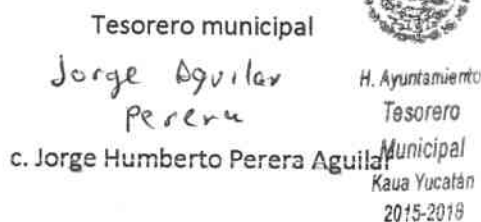 Tesorero municipal
Jorge Aguilar
Perera
c. Jorge Humberto Perera Aguilar
H. Ayuntamiento
Tesorero
Municipal
Kaua Yucatán
2015-2018